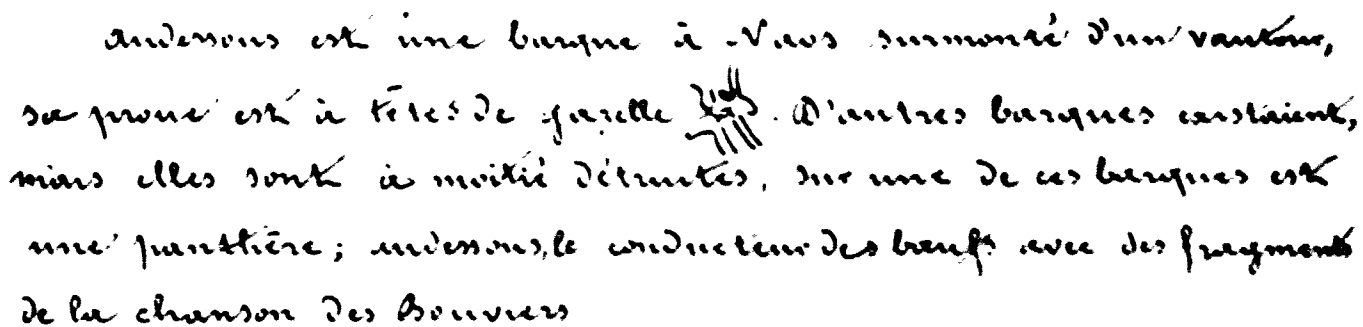 audessous est une barque à Naos surmonté d'un vautour,
sa proue est à têtes de gazelle . D'autres barques existaient,
mais elles sont à moitié détruites, sur une de ces barques est
une panthère; audessous, le conducteur des bœufs avec des fragments
de la chanson des Bouviers